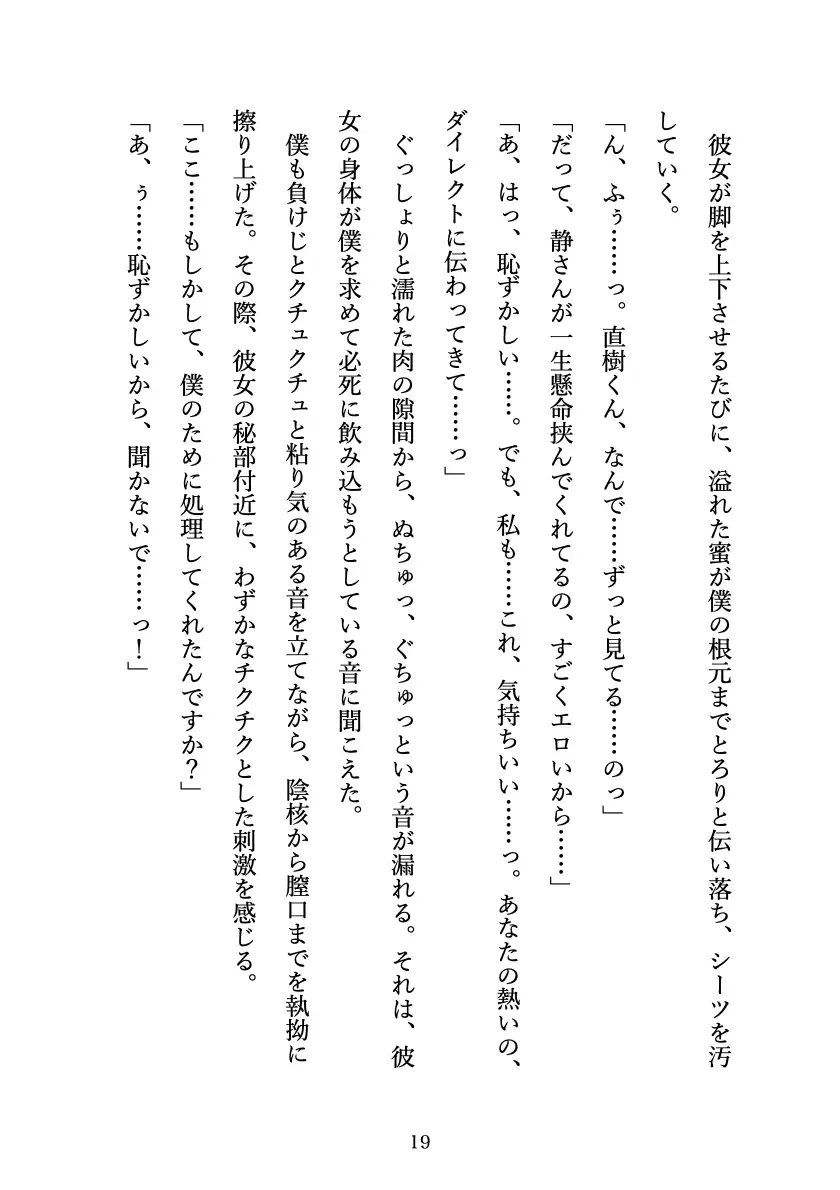 彼女が脚を上下させるたびに、溢れた蜜が僕の根元までとろりと伝い落ち、シーツを汚
していく。
「ん、ふぅ……っ。直樹くん、なんで……ずっと見てる……のっ」
「だって、静さんが一生懸命挟んでくれてるの、すごくエロいから……」
「あ、はっ、恥ずかしい……。でも、私も……これ、気持ちいい……っ。あなたの熱いの、
ダイレクトに伝わってきて……っ」
ぐっしょりと濡れた肉の隙間から、ぬちゅっ、ぐちゅっという音が漏れる。それは、彼
女の身体が僕を求めて必死に飲み込もうとしている音に聞こえた。
僕も負けじとクチュクチュと粘り気のある音を立てながら、陰核から膣口までを執拗に
擦り上げた。その際、彼女の秘部付近に、わずかなチクチクとした刺激を感じる。
「ここ……もしかして、僕のために処理してくれたんですか？」
「あ、ぅ……恥ずかしいから、聞かないで……っ！」
19